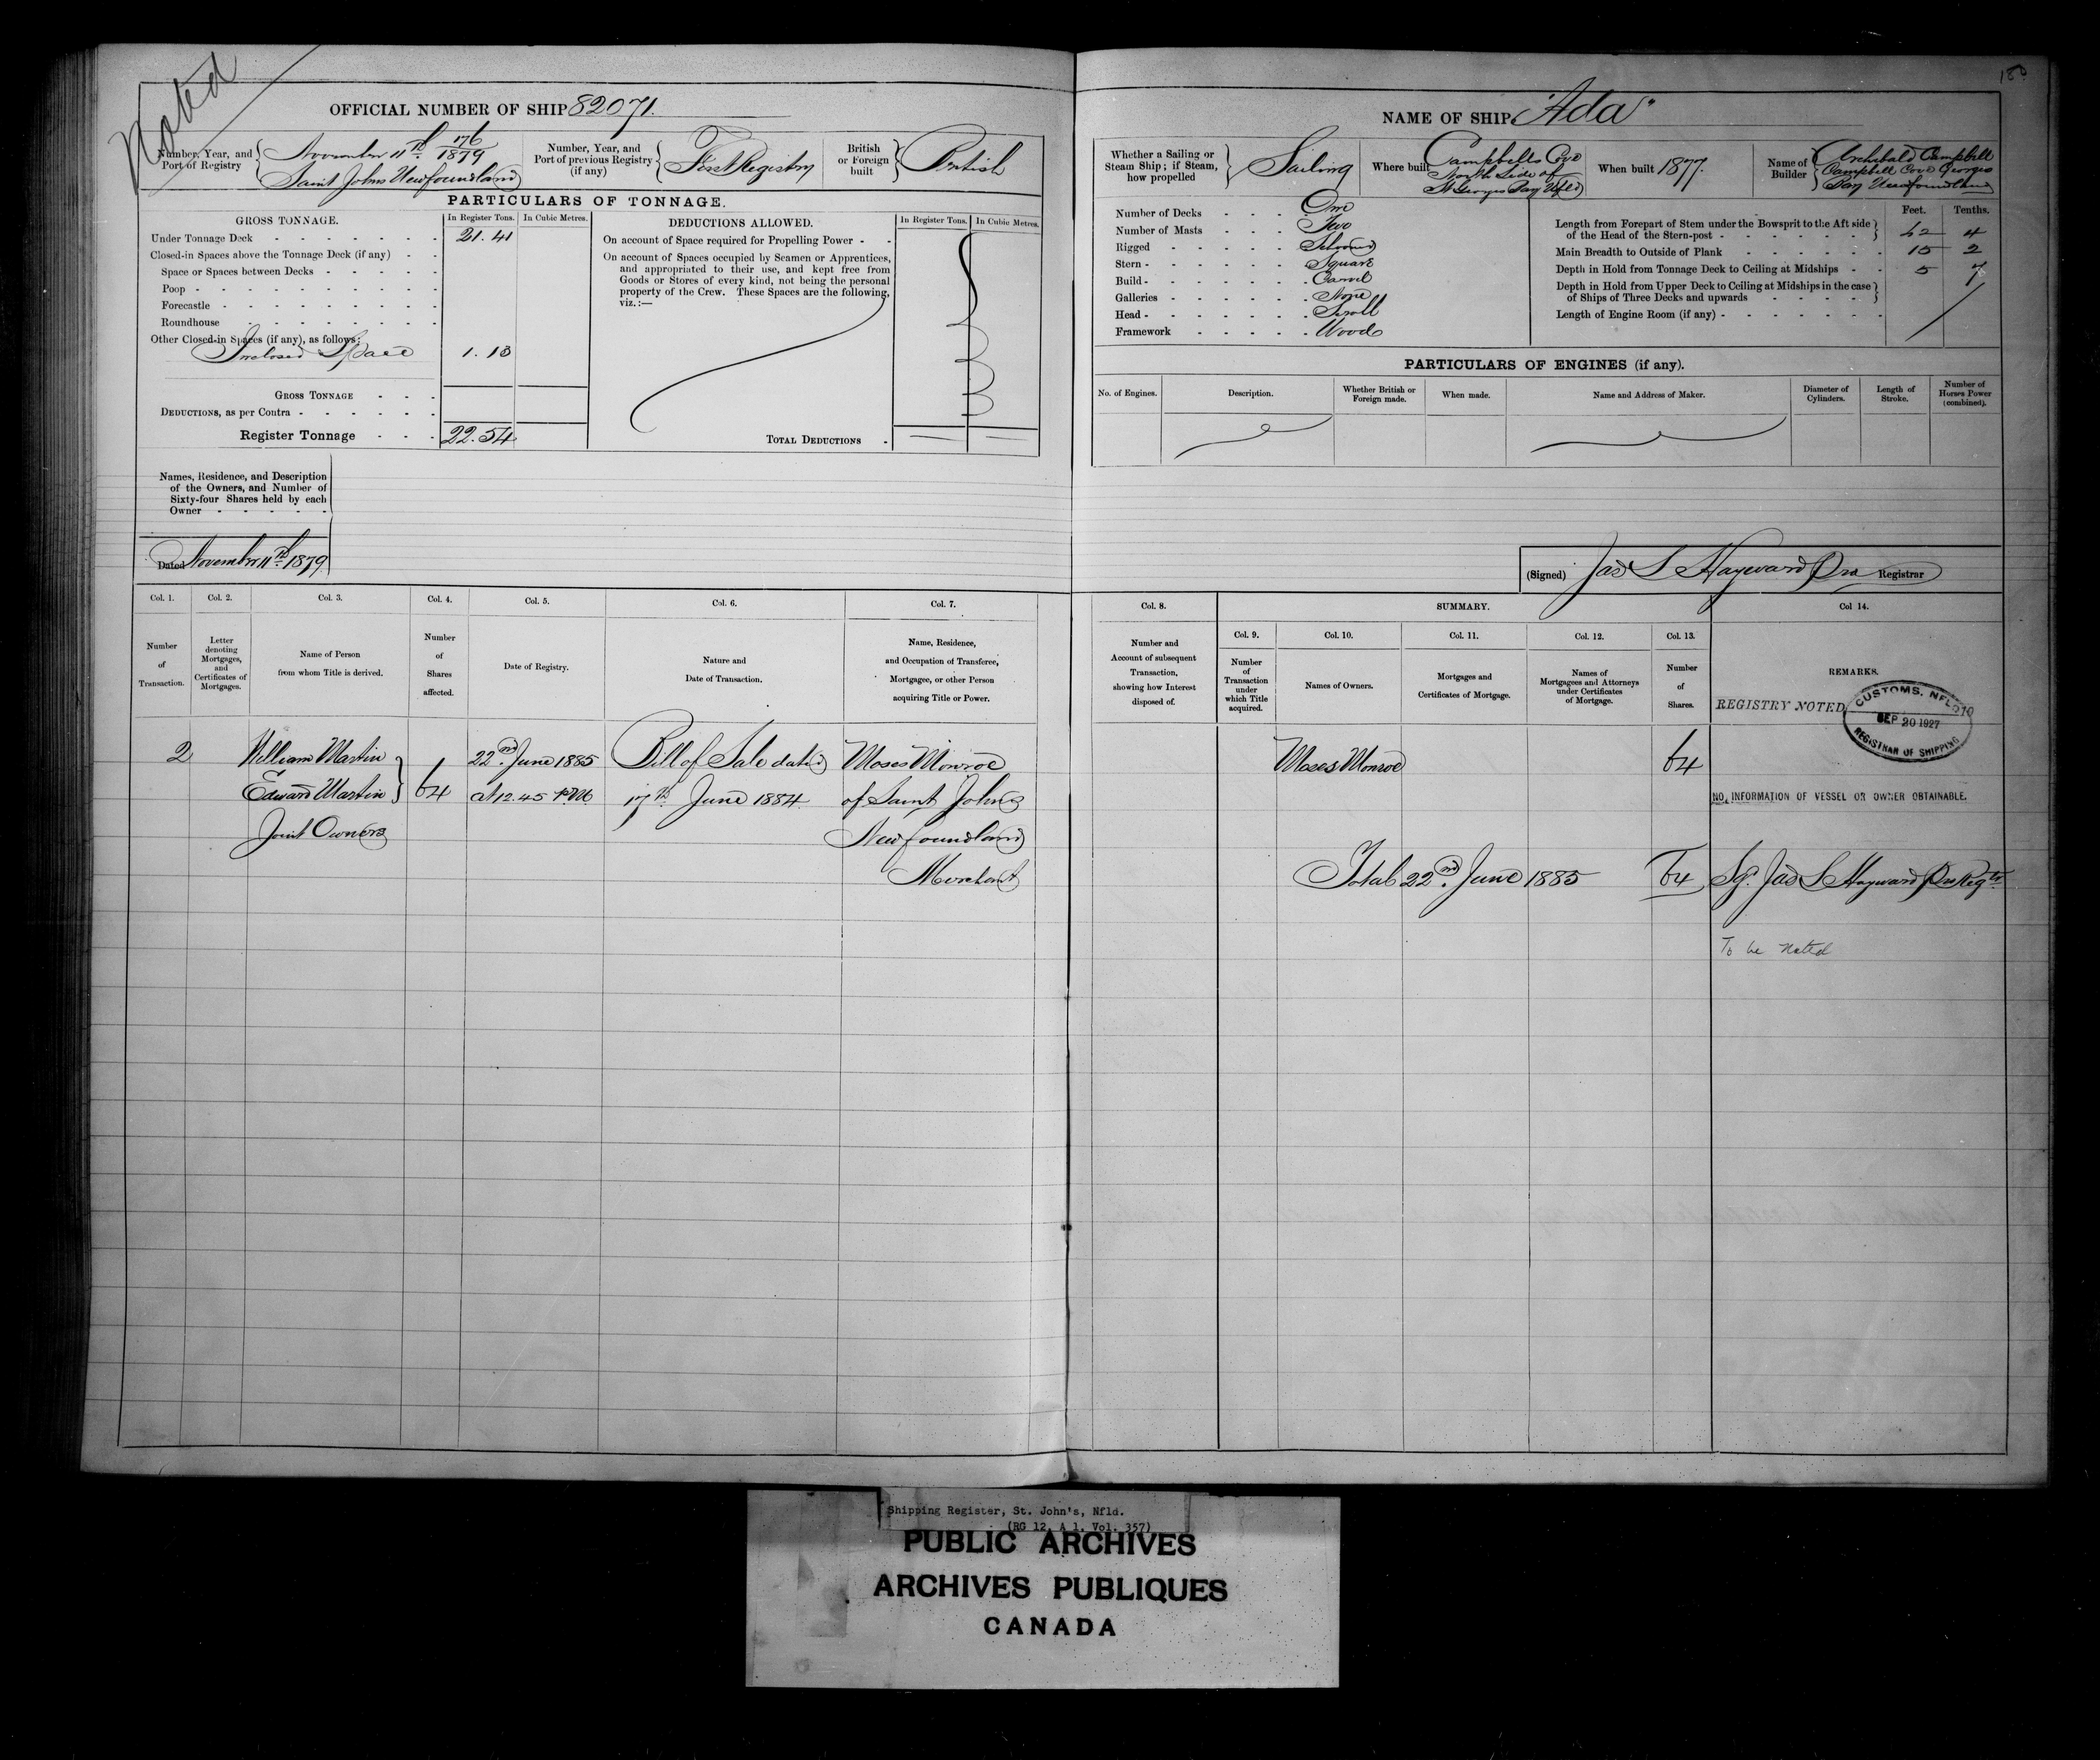 Noted
180
OFFICIAL NUMBER OF SHIP 82071.
Number, Year, and Port of Registry { November 11th 176/1879
Saint Johns Newfoundland
Number, Year, and Port of previous Registry (if any) { First Registry
British or Foreign built } British
PARTICULARS OF TONNAGE.
GROSS TONNAGE. In Register Tons. In Cubic Metres.
Under Tonnage Deck - - 21.41
Closed-in Spaces above the Tonnage Deck (if any) - -
Space or Spaces between Decks - -
Poop - -
Forecastle - -
Roundhouse - -
Other Closed-in Spaces (if any), as follows:
Inclosed Space 1.13
GROSS TONNAGE - - -
DEDUCTIONS, as per Contra - -
Register Tonnage - - - 22.54
DEDUCTIONS ALLOWED. In Register Tons. In Cubic Metres.
On account of Space required for Propelling Power - -
On account of Spaces occupied by Seamen or Apprentices,
and appropriated to their use, and kept free from
Goods or Stores of every kind, not being the personal
property of the Crew. These Spaces are the following,
viz.:—
TOTAL DEDUCTIONS -
Names, Residence, and Description
of the Owners, and Number of
Sixty-four Shares held by each
Owner - - - - -
Dated November 11th 1879
NAME OF SHIP "Ada"
Whether a Sailing or Steam Ship; if Steam, how propelled } Sailing
Where built Campbells Cove
North Side of
St Georges Bay Nfld
When built 1877.
Name of Builder { Archibald Campbell
Campbell Cove Georges
Bay Newfoundland
Number of Decks - - - One
Number of Masts - - - Two
Rigged - - - Schooner
Stern - - - Square
Build - - - Carvel
Galleries - - - None
Head - - - Scroll
Framework - - - Wood
Feet. Tenths.
Length from Forepart of Stem under the Bowsprit to the Aft side of the Head of the Stern-post - 42 4
Main Breadth to Outside of Plank - 15 2
Depth in Hold from Tonnage Deck to Ceiling at Midships - 5 7
Depth in Hold from Upper Deck to Ceiling at Midships in the case of Ships of Three Decks and upwards -
Length of Engine Room (if any) -
PARTICULARS OF ENGINES (if any).
No. of Engines. Description. Whether British or Foreign made. When made. Name and Address of Maker. Diameter of Cylinders. Length of Stroke. Number of Horses Power (combined).
(Signed) Jas S Hayward Pro Registrar
Col. 1. Col. 2. Col. 3. Col. 4. Col. 5. Col. 6. Col. 7.
Number of Transaction.
Letter denoting Mortgages, and Certificates of Mortgages.
Name of Person from whom Title is derived.
Number of Shares affected.
Date of Registry.
Nature and Date of Transaction.
Name, Residence, and Occupation of Transferee, Mortgagee, or other Person acquiring Title or Power.
2 William Martin 22nd June 1885 Bill of Sale dated Moses Monroe
Edward Martin } 64 at 12.45 PM 17th June 1884 of Saint Johns
Joint Owners Newfoundland
Merchant
Col. 8. SUMMARY. Col 14.
Col. 9. Col. 10. Col. 11. Col. 12. Col. 13.
Number and Account of subsequent Transaction, showing how Interest disposed of.
Number of Transaction under which Title acquired.
Names of Owners.
Mortgages and Certificates of Mortgage.
Names of Mortgagees and Attorneys under Certificates of Mortgage.
Number of Shares.
REMARKS.
REGISTRY NOTED
CUSTOMS, NFLD
SEP 20 1927
REGISTRAR OF SHIPPING
Moses Monroe 64
NO. INFORMATION OF VESSEL OR OWNER OBTAINABLE.
Total 22nd June 1885 64 Sg. Jas S Hayward
To be Noted
Shipping Register, St. John's, Nfld.
(RG 12, A 1, Vol. 357)
PUBLIC ARCHIVES
ARCHIVES PUBLIQUES
CANADA